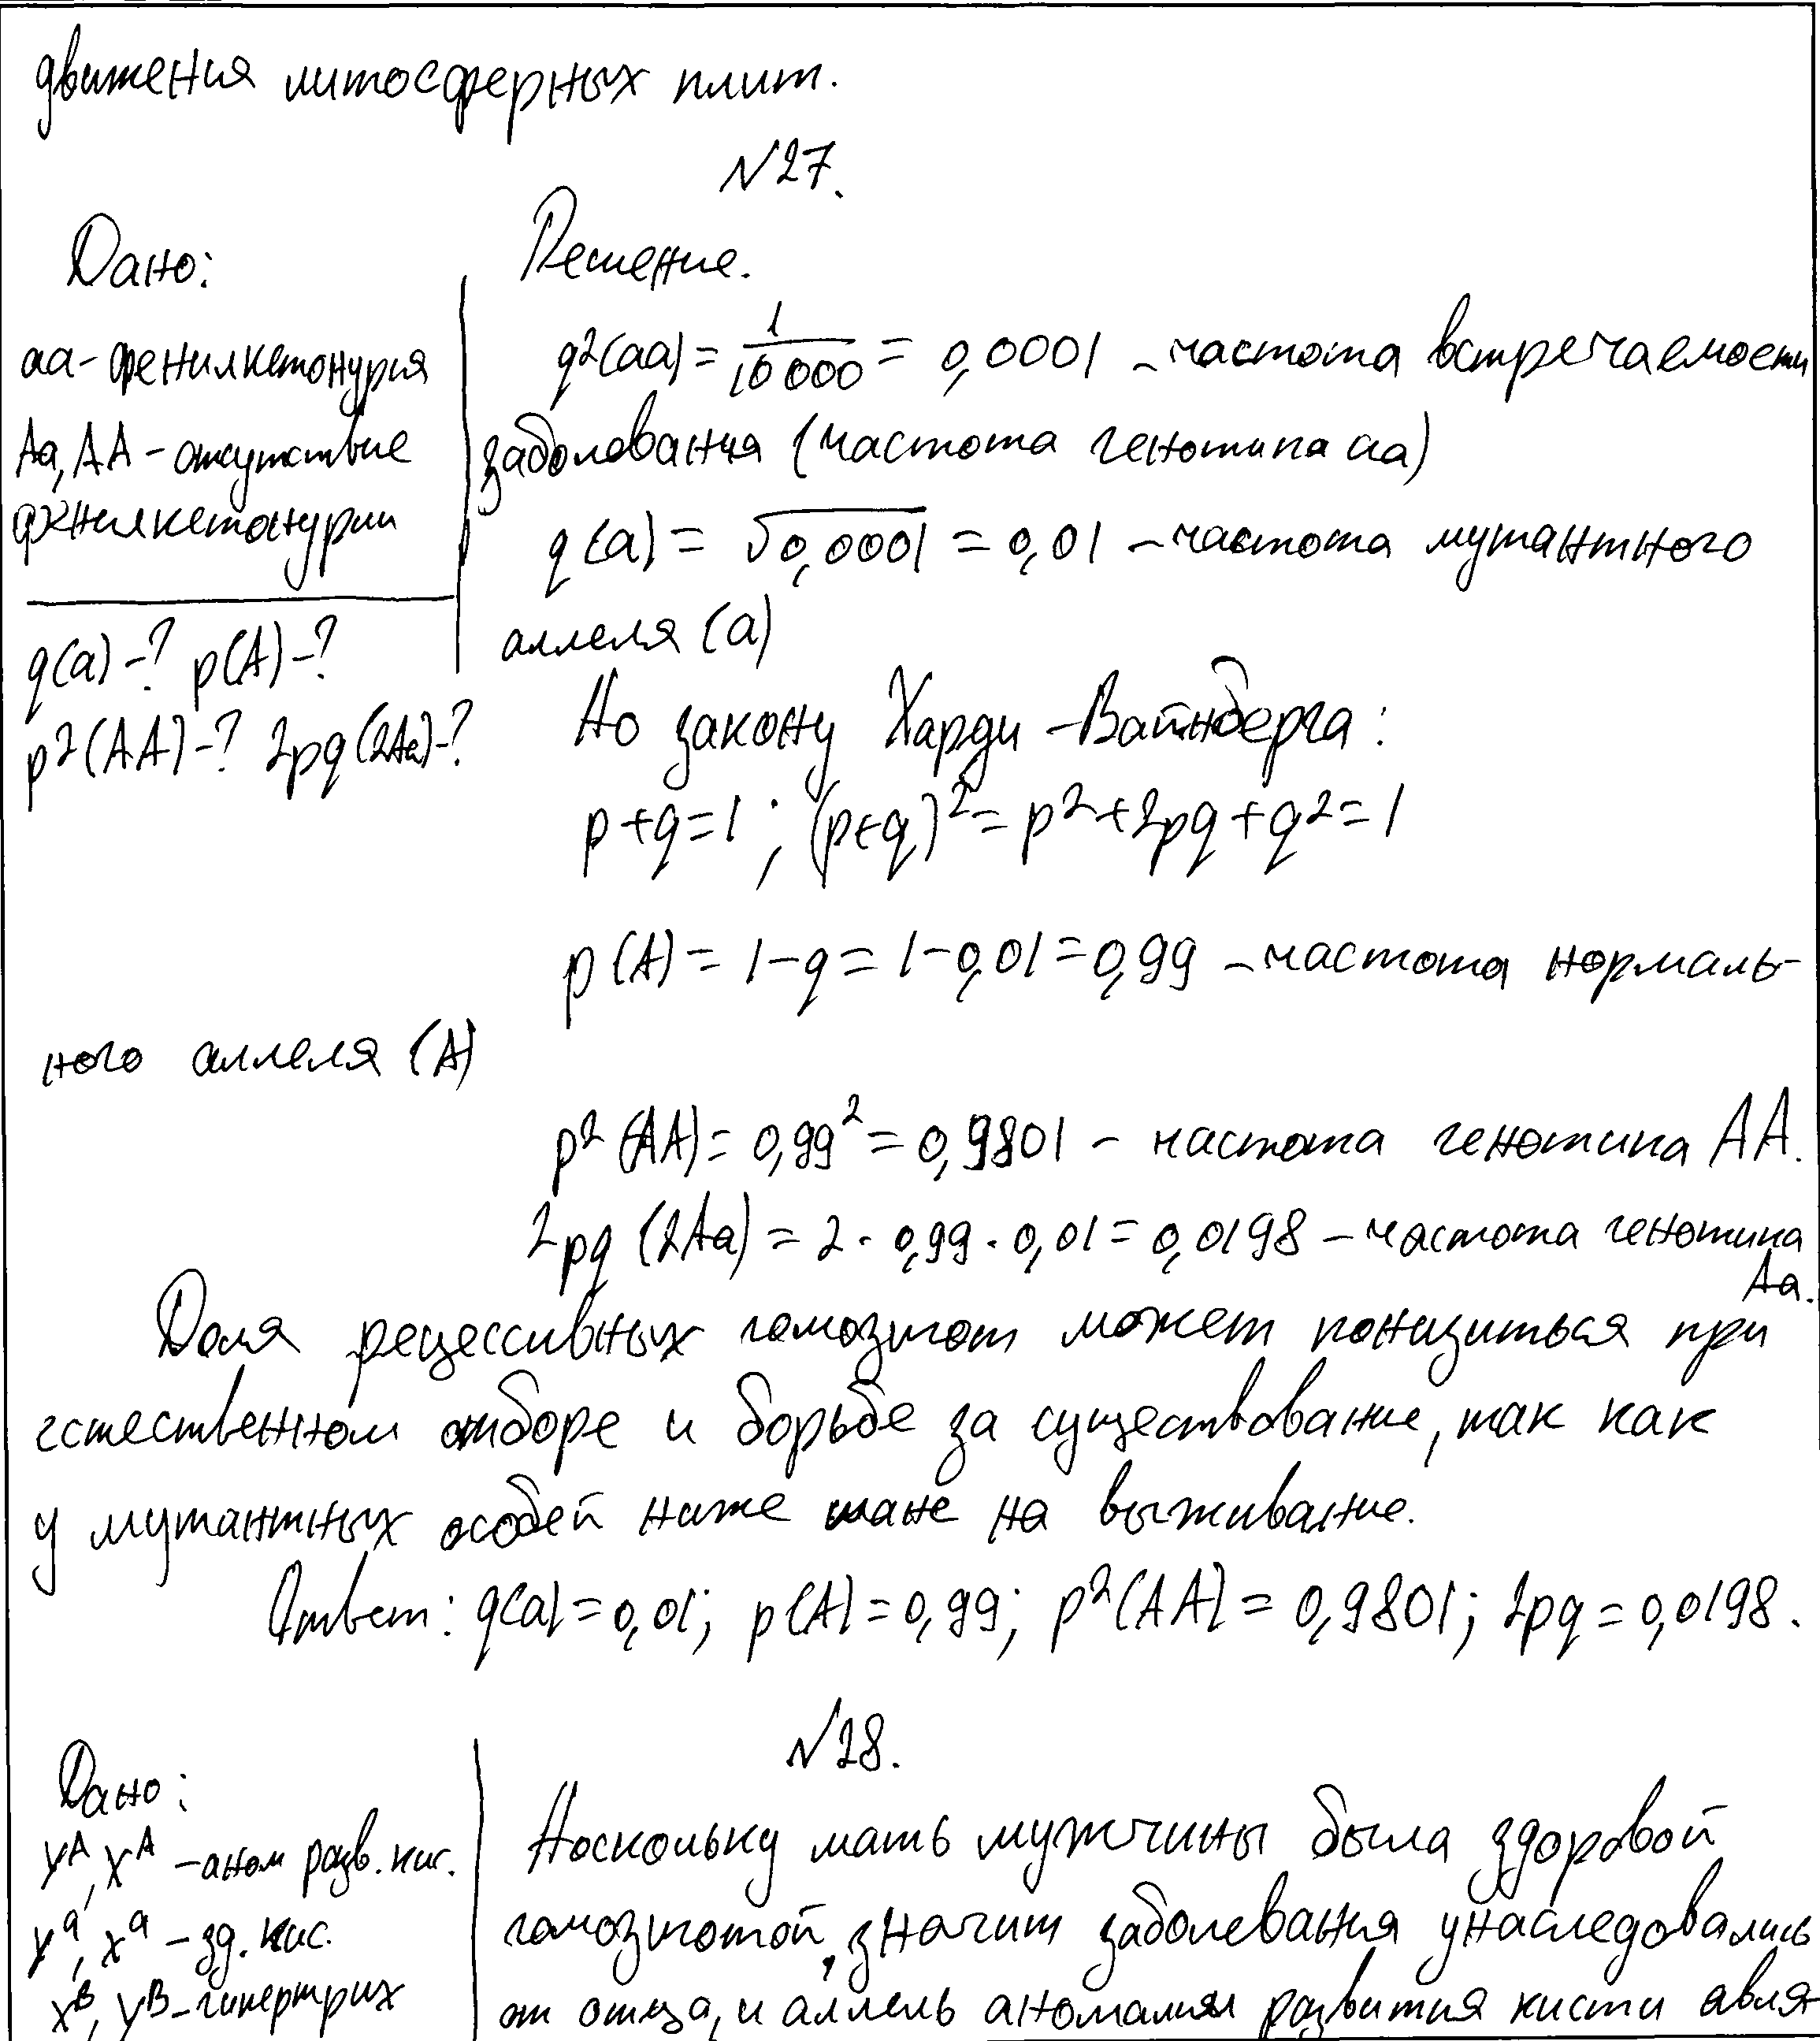 движения литосферных плит.
№27.
Дано:
аа - фенилкетонурия
Аа, АА - отсутствие
фенилкетонурии
q(a) -? p(A) -?
p²(AA) -? 2pq(2Aa) -?
Решение.
q²(aa) = 1/10000 = 0,0001 - частота встречаемости
заболевания (частота генотипа аа)
q(a) = √0,0001 = 0,01 - частота мутантного
аллеля (а)
По закону Харди - Вайнберга:
p+q=1; (p+q)² = p²+2pq+q²=1
p(A) = 1-q = 1-0,01 = 0,99 - частота нормаль-
ного аллеля (А)
p²(AA) = 0,99² = 0,9801 - частота генотипа АА.
2pq (2Aa) = 2 · 0,99 · 0,01 = 0,0198 - частота генотипа
Аа.
Доля рецессивных гомозигот может понизиться при
естественном отборе и борьбе за существование, так как
у мутантных особей ниже шанс на выживание.
Ответ: q(a) = 0,01; p(A) = 0,99; p²(AA) = 0,9801; 2pq = 0,0198.
№28.
Дано:
Yᴬ, Xᴬ - аном разв. кис.
Yᵃ, Xᵃ - зд. кис.
Xᴮ, Yᴮ - гипертрих
Поскольку мать мужчины была здоровой
гомозиготой, значит заболевания унаследовались
от отца, и аллель аномалии развития кисти явля